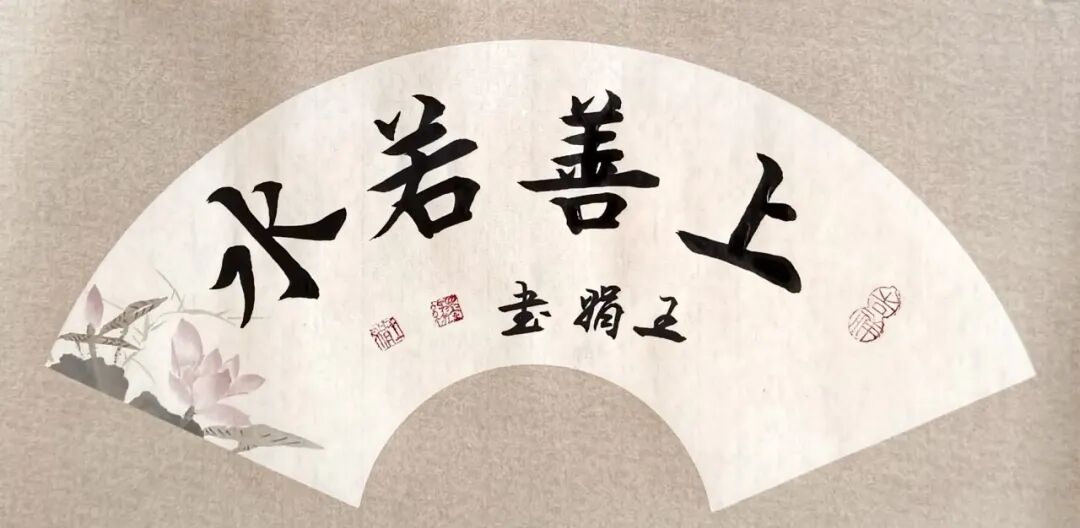 上善若水
王娟书